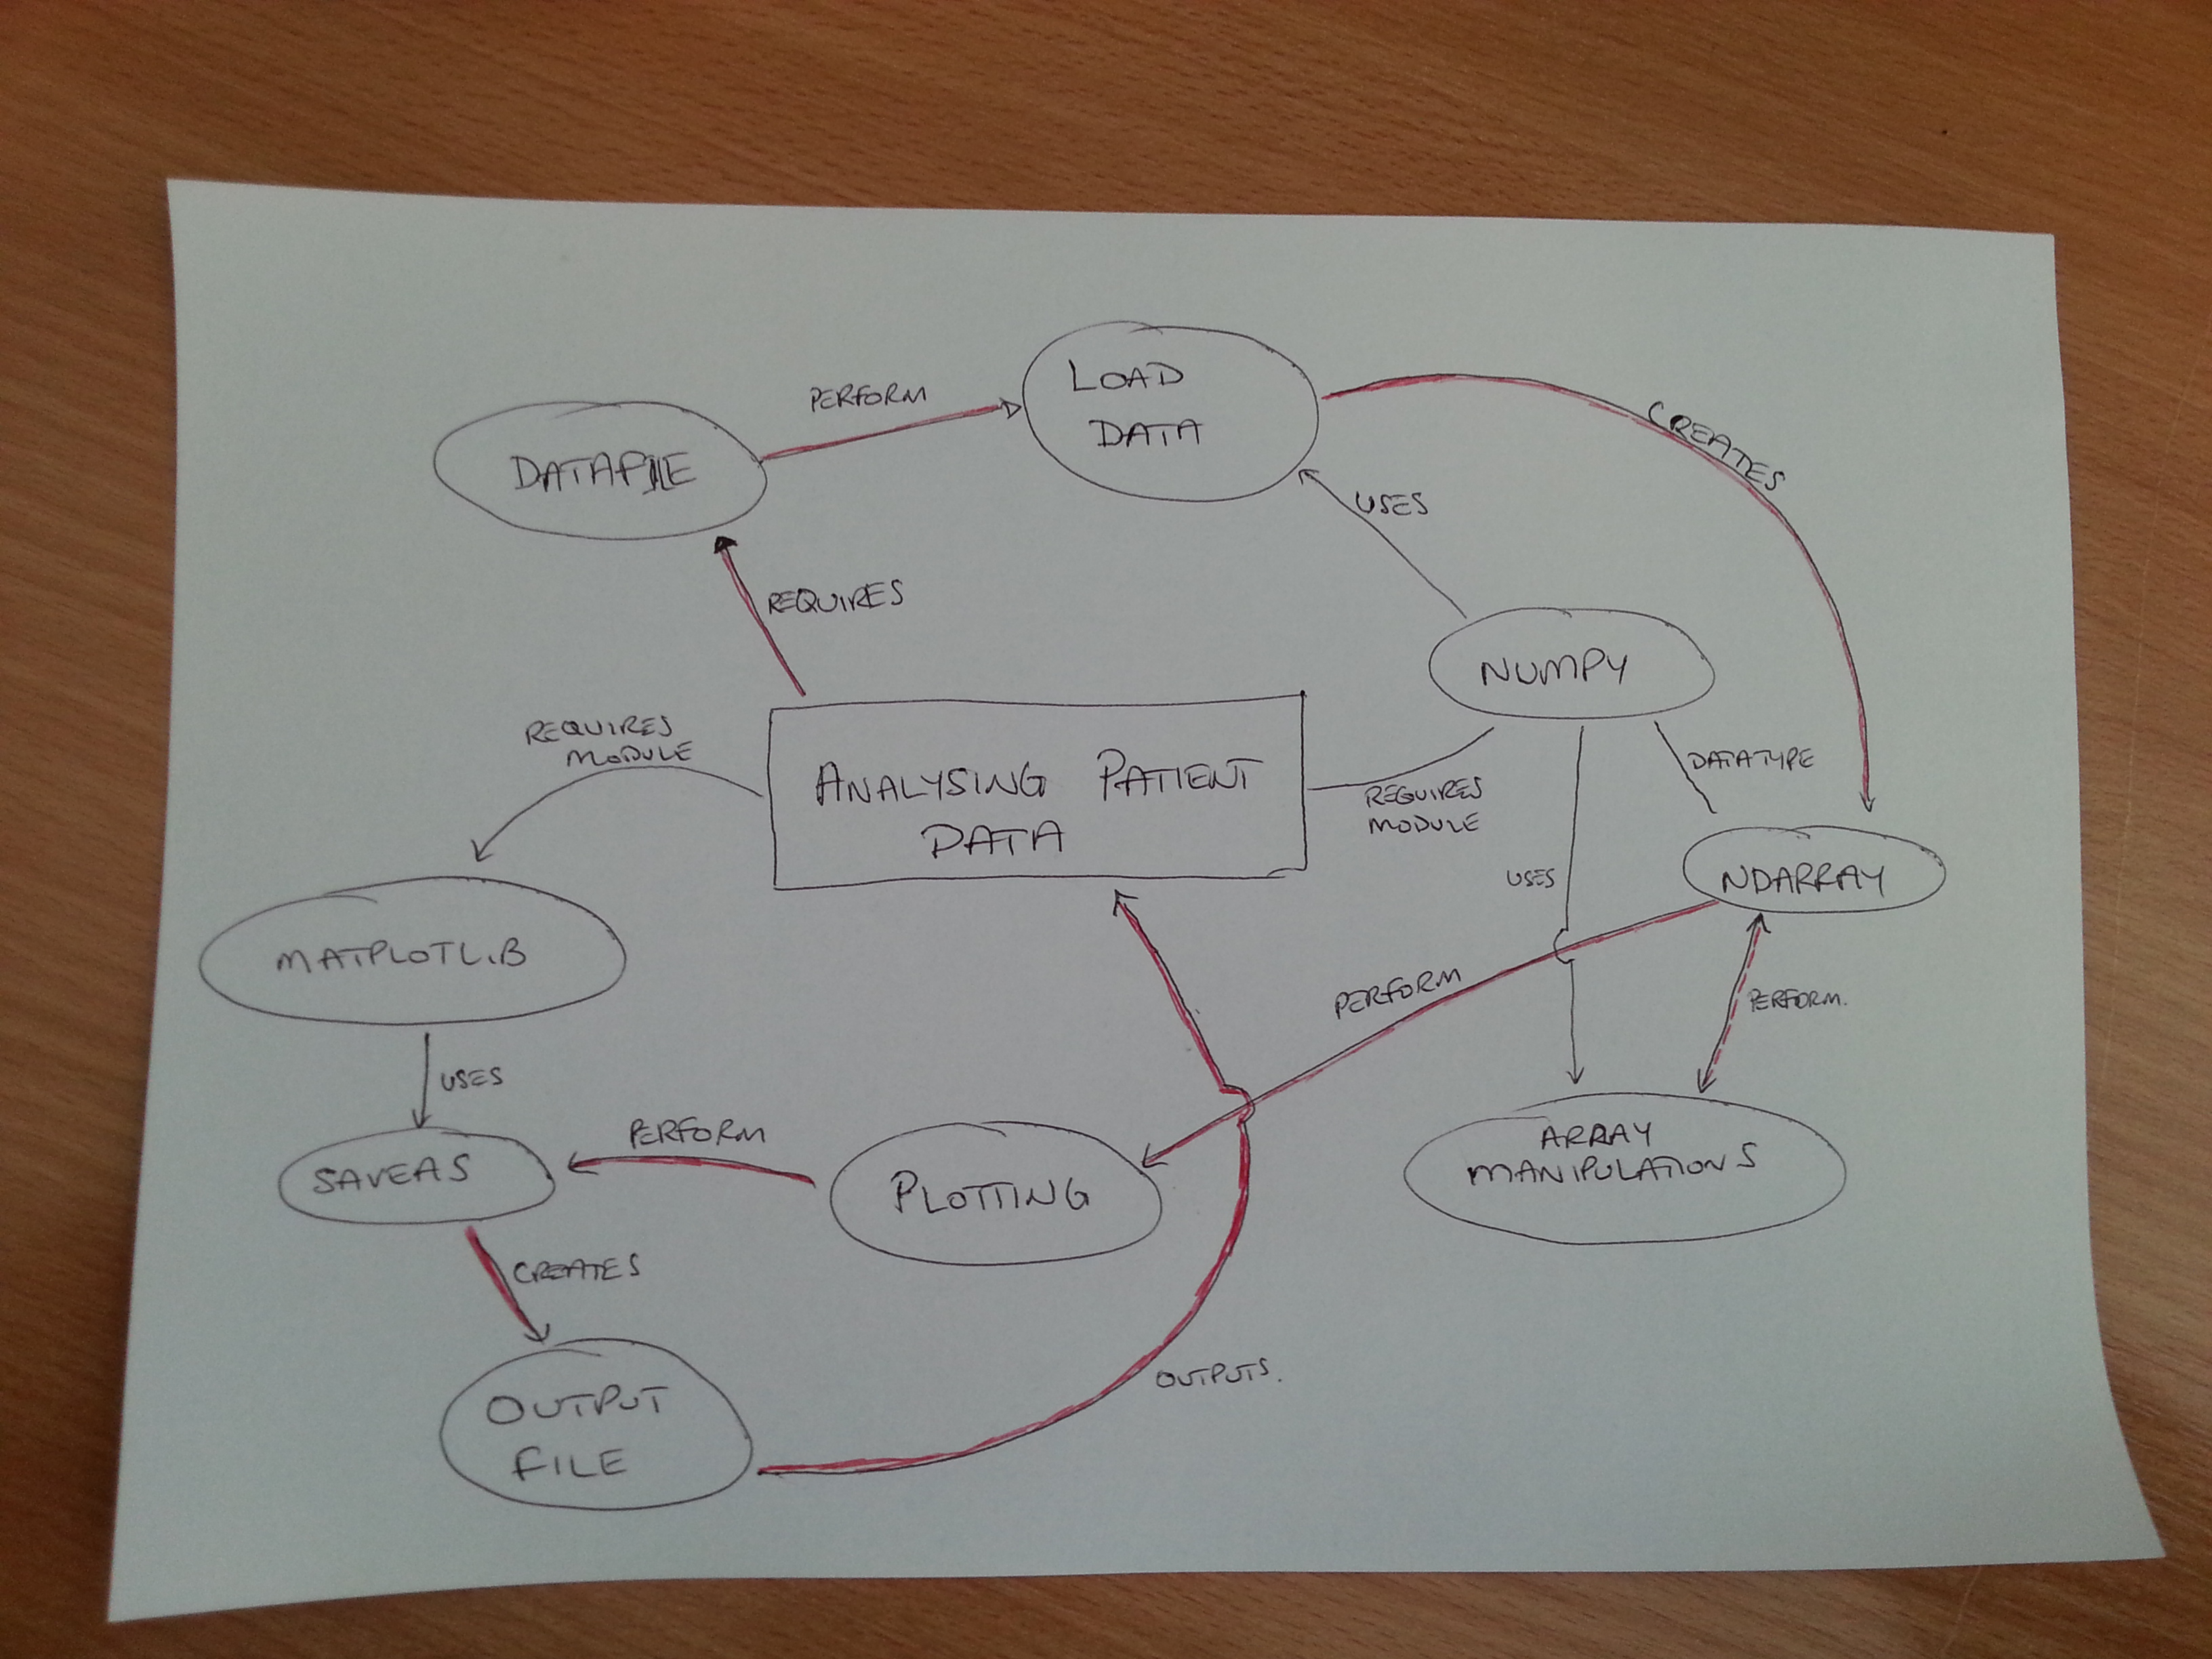 LOAD
DATA
PERFORM
CREATES
DATAFILE
USES
REQUIRES
NUMPY
REQUIRES
MODULE
ANALYSING PATIENT
DATA
REQUIRES
MODULE
DATATYPE
USES
NDARRAY
MATPLOTLIB
PERFORM
PERFORM.
USES
PERFORM
ARRAY
MANIPULATIONS
SAVEAS
PLOTTING
CREATES
OUTPUTS.
OUTPUT
FILE